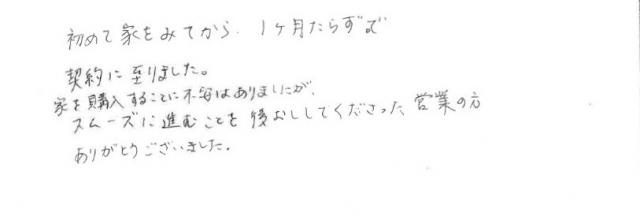 初めて家をみてから、1ヶ月たらずで
契約に至りました。
家を購入することに不安はありましたが、
スムーズに進むことを後おししてくださった営業の方
ありがとうございました。